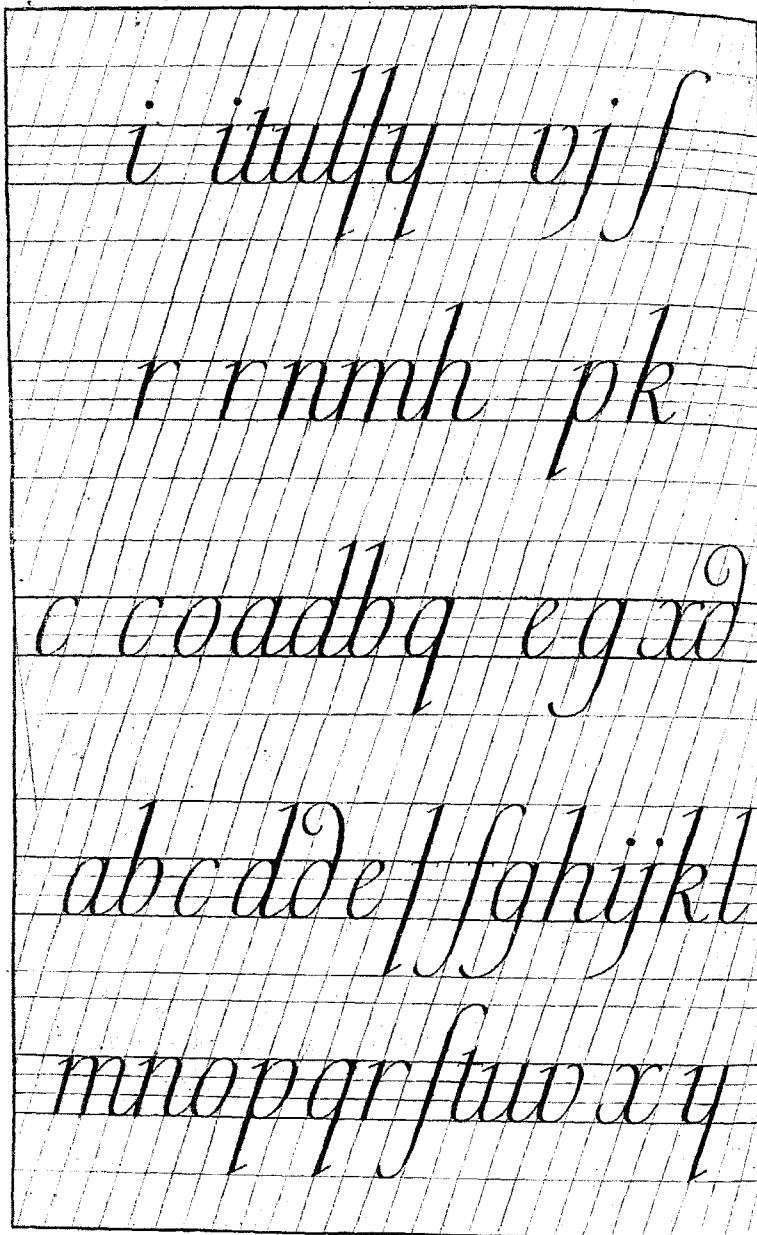 i itulfy vjſ
r rnmh pk
c coadbq egxd
abcddeffghijkl
mnopqrſtuvxy